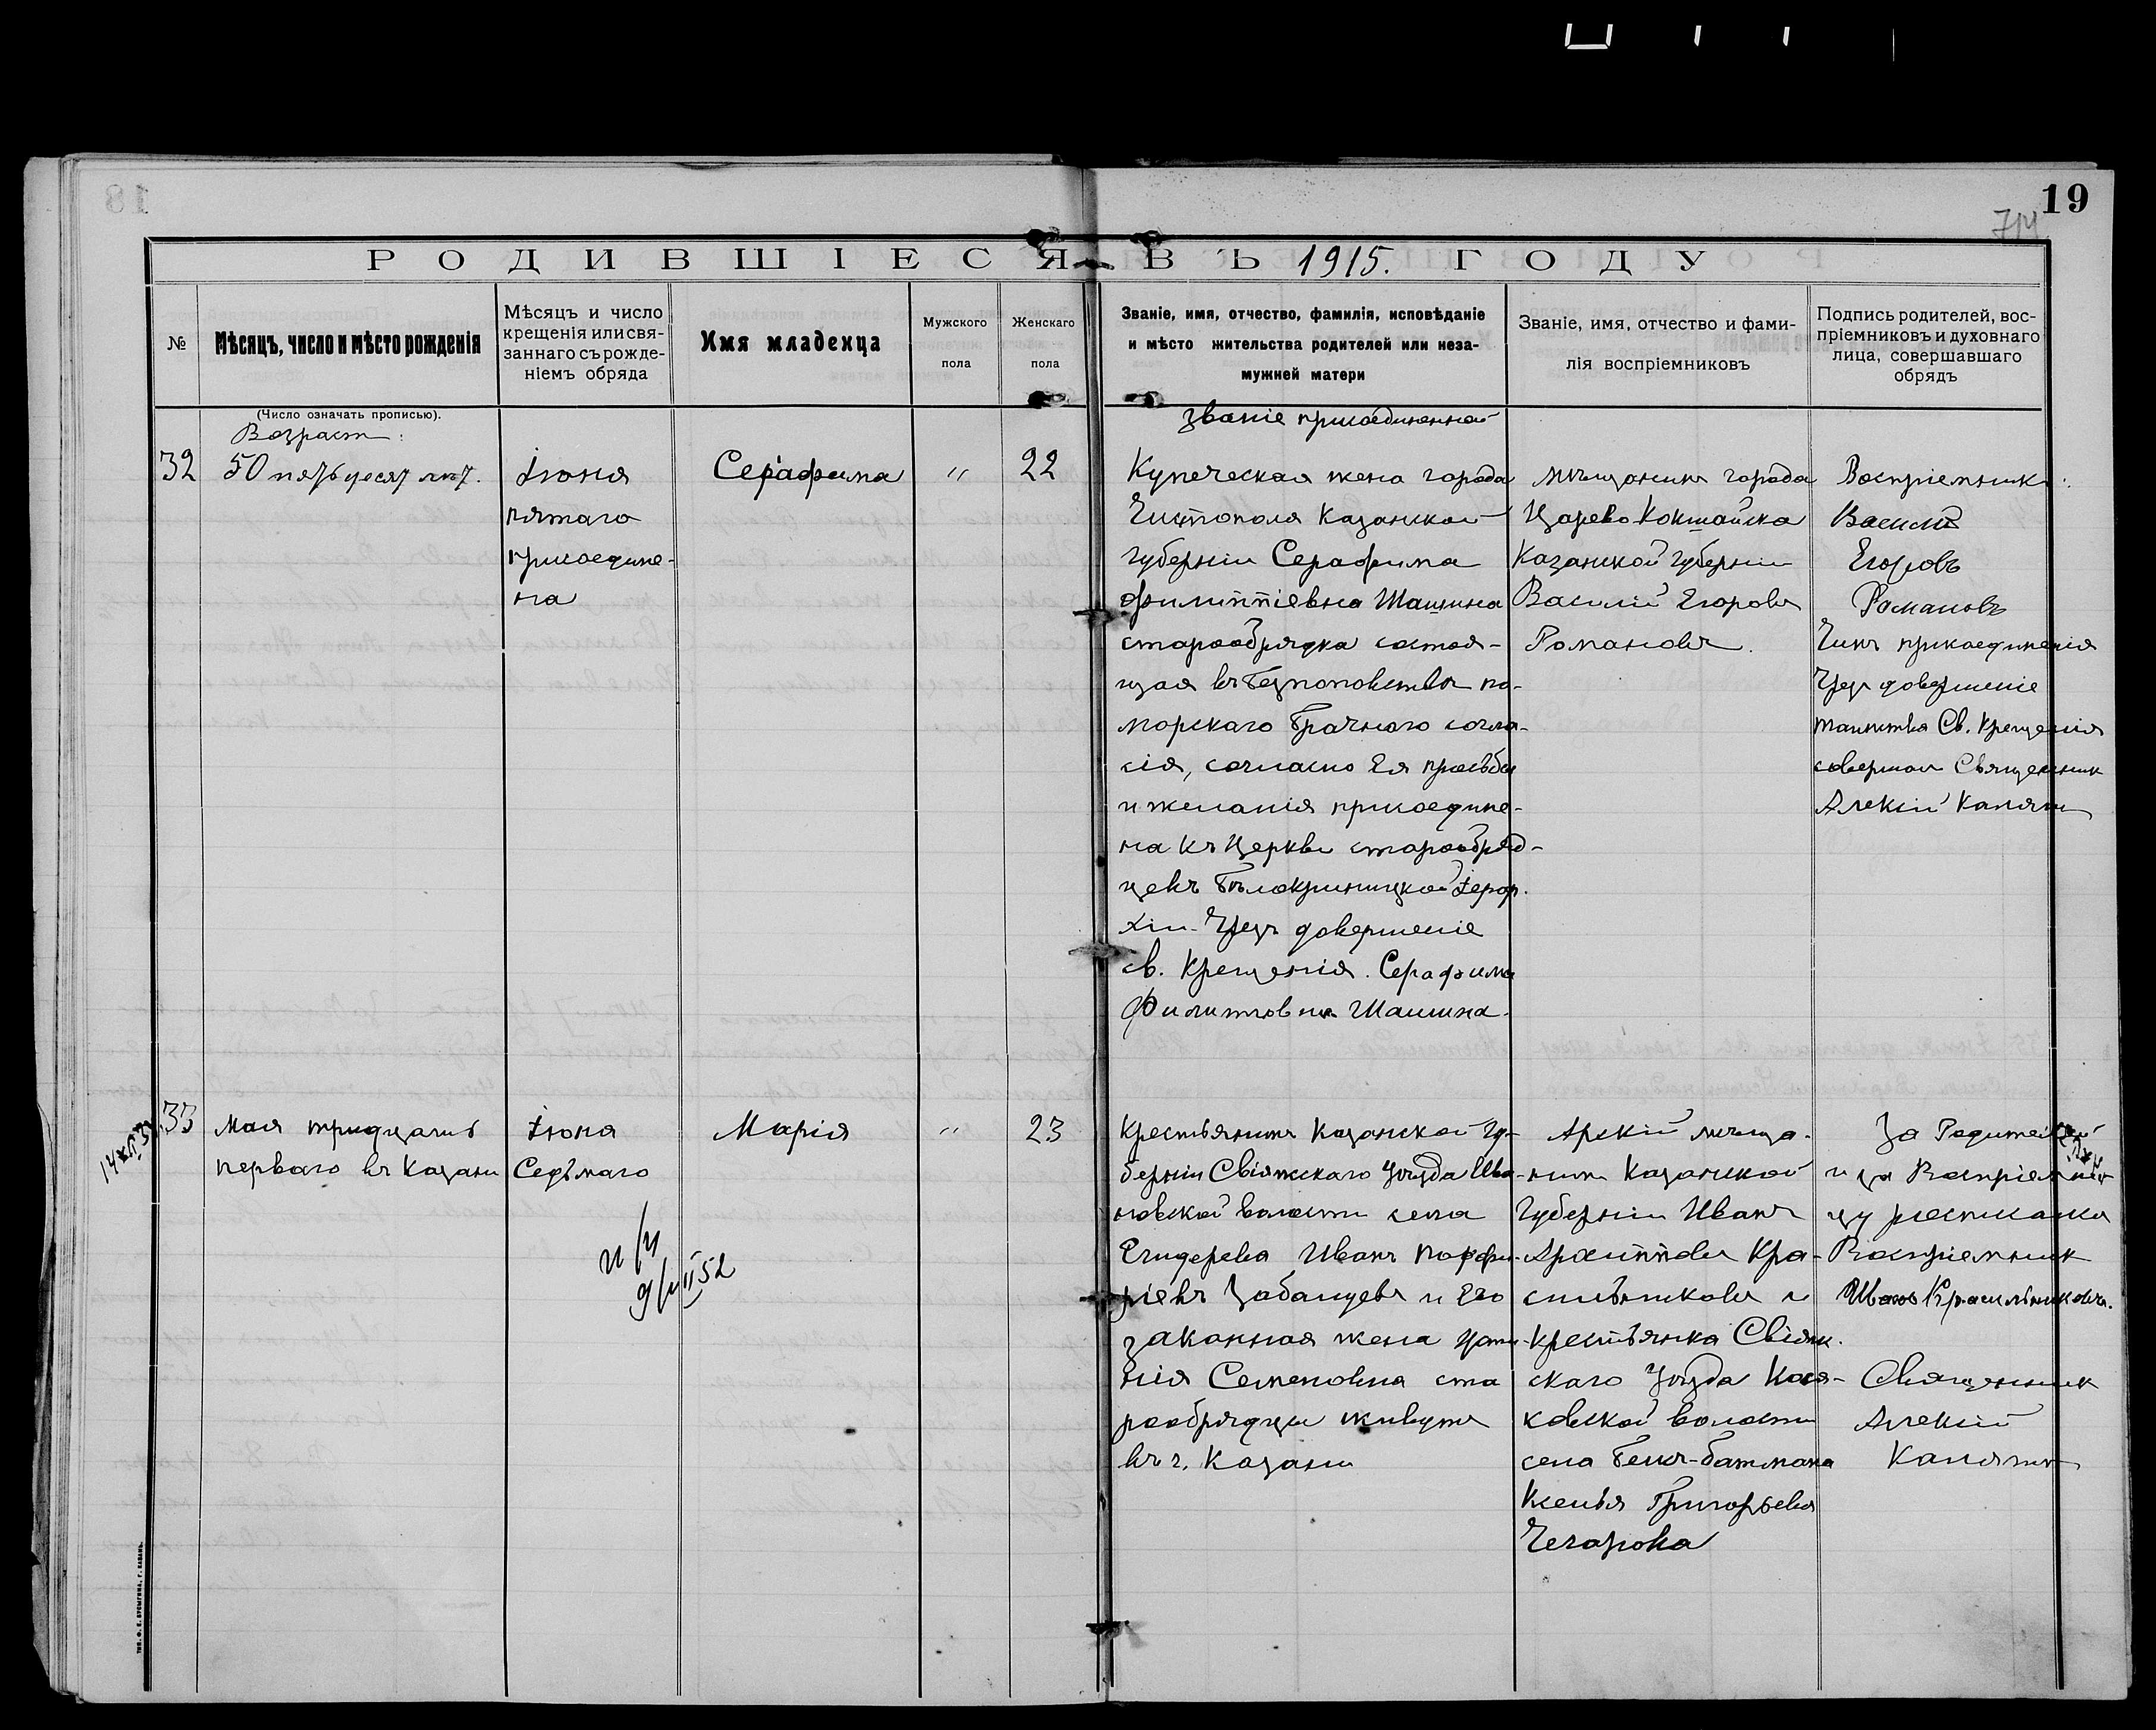 19
РОДИВШІЕСЯ ВЪ 1915. ГОДУ
№
Мѣсяцъ, число и мѣсто рожденія
Мѣсяцъ и число
крещенія или свя-
заннаго съ рожде-
ніемъ обряда
Имя младенца
Мужского
пола
Женскаго
пола
Званіе, имя, отчество, фамилія, исповѣданіе
и мѣсто жительства родителей или неза-
мужней матери
Званіе, имя, отчество и фами-
лія воспріемниковъ
Подпись родителей, вос-
пріемниковъ и духовнаго
лица, совершавшаго
обрядъ
(Число означать прописью).
32
Возрастъ:
50 пятьдесят лѣт.
Іюня
пятаго
присоедине-
на
Серафима
"
22
званіе присоединенной
Купеческая жена города
Чистополя Казанской
губерніи Серафима
Филиппіевна Шашина
старообрядка состоя-
щая въ безпоповствѣ по-
морскаго брачнаго согла-
сія, согласно Ея просьбы
и желанія присоедине-
на къ Церкви старообряд-
цевъ Бѣлокриницкой Іерар-
хіи. Чрезъ довершеніе
св. Крещенія. Серафима
Филиповна Шашина.
мѣщанинъ города
Царево Кокшайска
Казанской губерніи
Василій Егоровъ
Романовъ.
Воспріемникъ:
Василій
Егоровъ
Романовъ
Чинъ присоединенія
Чрез довершеніе
таинства Св. Крещенія
совершал Священник
Алексій Калягин
33
Мая тридцать
перваго въ Казани
Іюня
Седьмаго
Марія
"
23
Крестьянинъ Казанской Гу-
берніи Свіяжскаго Уѣзда Ива-
новской волости села
Егидерева Иванъ Порфи-
ріевъ Забалуевъ и Его
законная жена
нія Семеновна ста
рообрядцы живутъ
въ г. Казани
Арскій мѣща-
нинъ Казанской
Губерніи Иванъ
Архиповъ Кра-
сильниковъ и
Крестьянка Свіяж.
скаго Уѣзда
ковской волости
села Бекъ-батмана
Ксенья Григорьева
Чегарова
За Родителей
и за Воспріемни-
цу росписался
Воспріемник
Иванъ Красильниковъ.
Священник
Алексій
Калягин
9/VII 52